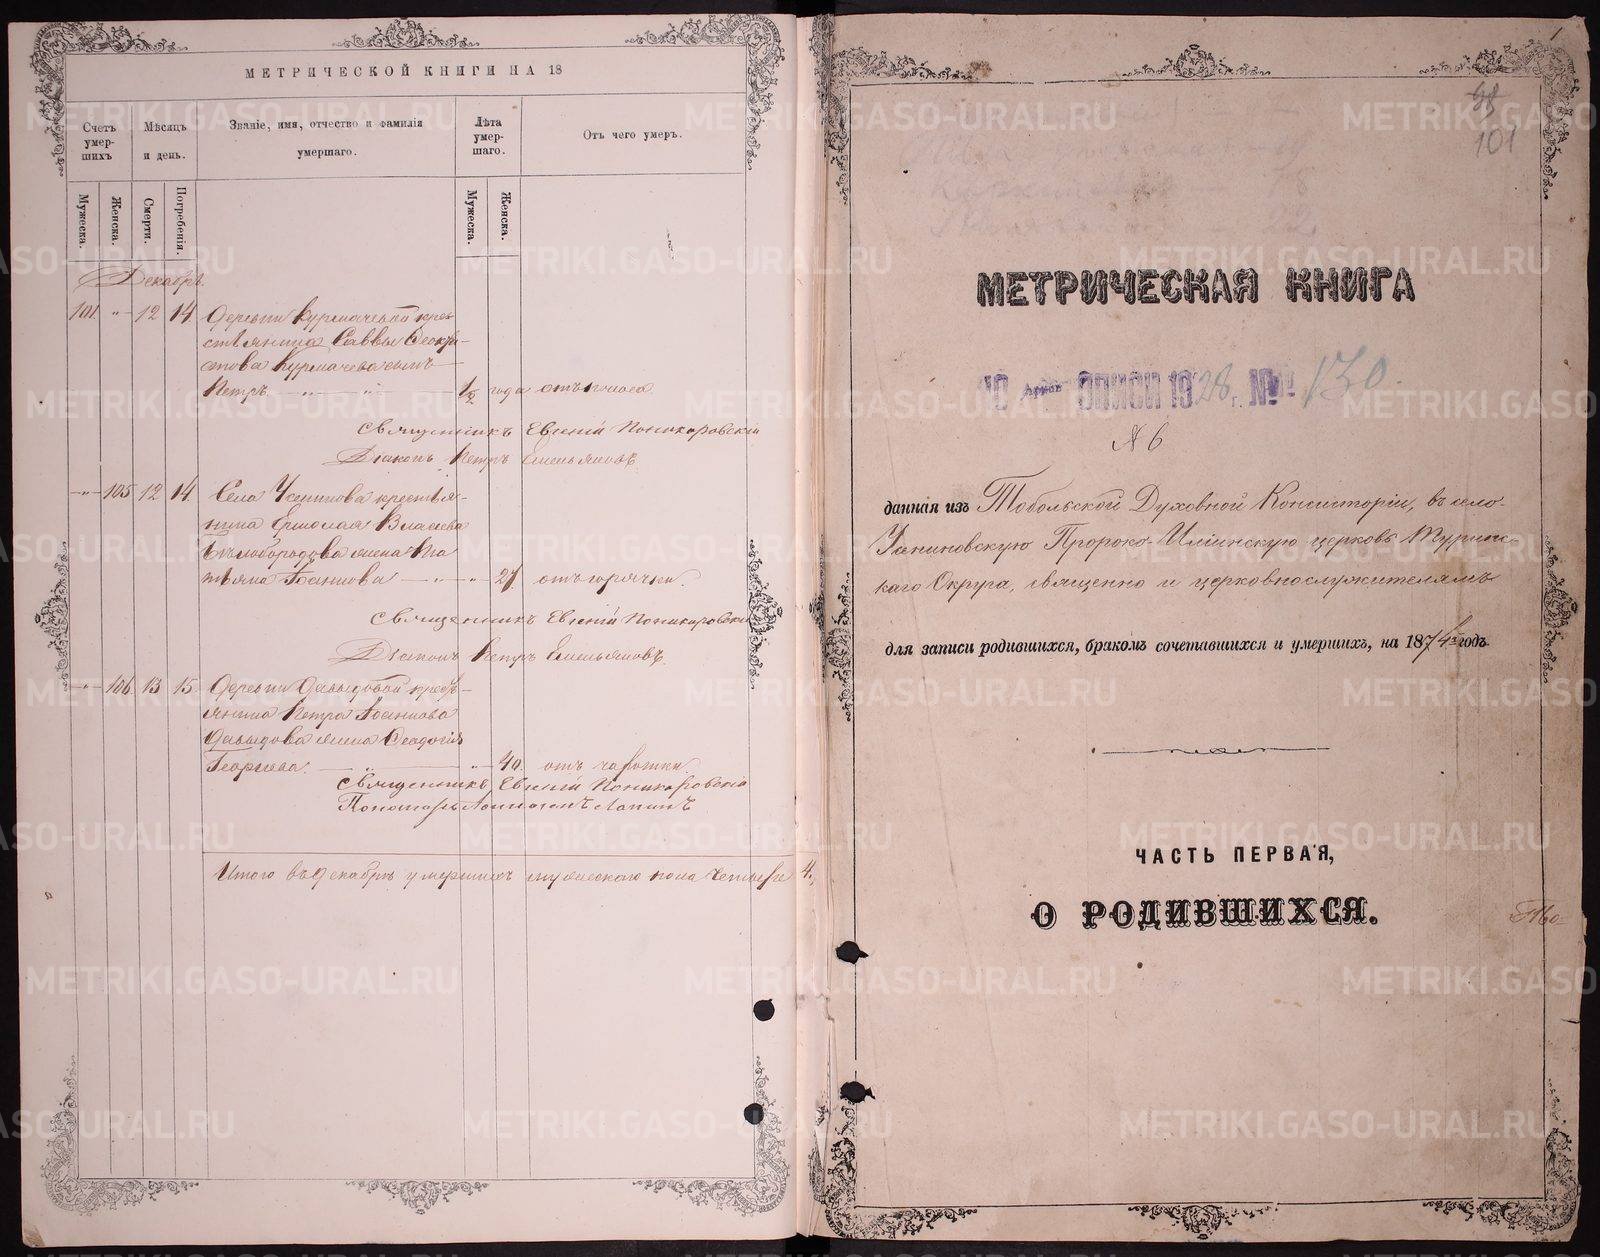 МЕТРИЧЕСКОЙ КНИГИ НА 18
Счетъ умер-шихъ
Мѣсяцъ и день.
Званіе, имя, отчество и фамилія умершаго.
Лѣта умер-шаго.
Отъ чего умеръ.
Мужеска.
Женска.
Смерти.
Погребенія.
Мужеска.
Женска.
Декабрь.
101. " 12 14. Деревни Курмачевой кре-
стьянина Саввы
Курмачева сынъ
Петръ. " 1/2 года отъ поноса.
Священникъ Евгеній Поникаровскій
Діаконъ Петръ Емельяновъ.
" 105 12 14. Села Усенинова крестья-
нина Ермолая Власьева
Бѣлобородова жена Та-
тьяна Іоаннова " " 27. отъ горячки.
Священникъ Евгеній Поникаровскій
Діаконъ Петръ Емельяновъ.
" 106. 13 15. Деревни Давыдовой кресть-
янина Петра Іоаннова
Давыдова жена
Георгіева. " " 40. отъ чахотки.
Священникъ Евгеній Поникаровскій
Пономарь Лапинъ
Итого въ декабрѣ умершихъ мужескаго пола четыре 4.
1
98
101
МЕТРИЧЕСКАЯ КНИГА
ПО архив. ОПИСИ 1928 г. № 130.
№ 6
данная изъ Тобольской Духовной Консисторіи, въ село-
Усениновскую Пророко-Иліинскую церковь Туринс-
каго Округа, священно и церковнослужителямъ
для записи родившихся, бракомъ сочетавшихся и умершихъ, на 1874й годъ.
ЧАСТЬ ПЕРВАЯ,
О РОДИВШИХСЯ.
METRIKI.GASO-URAL.RU